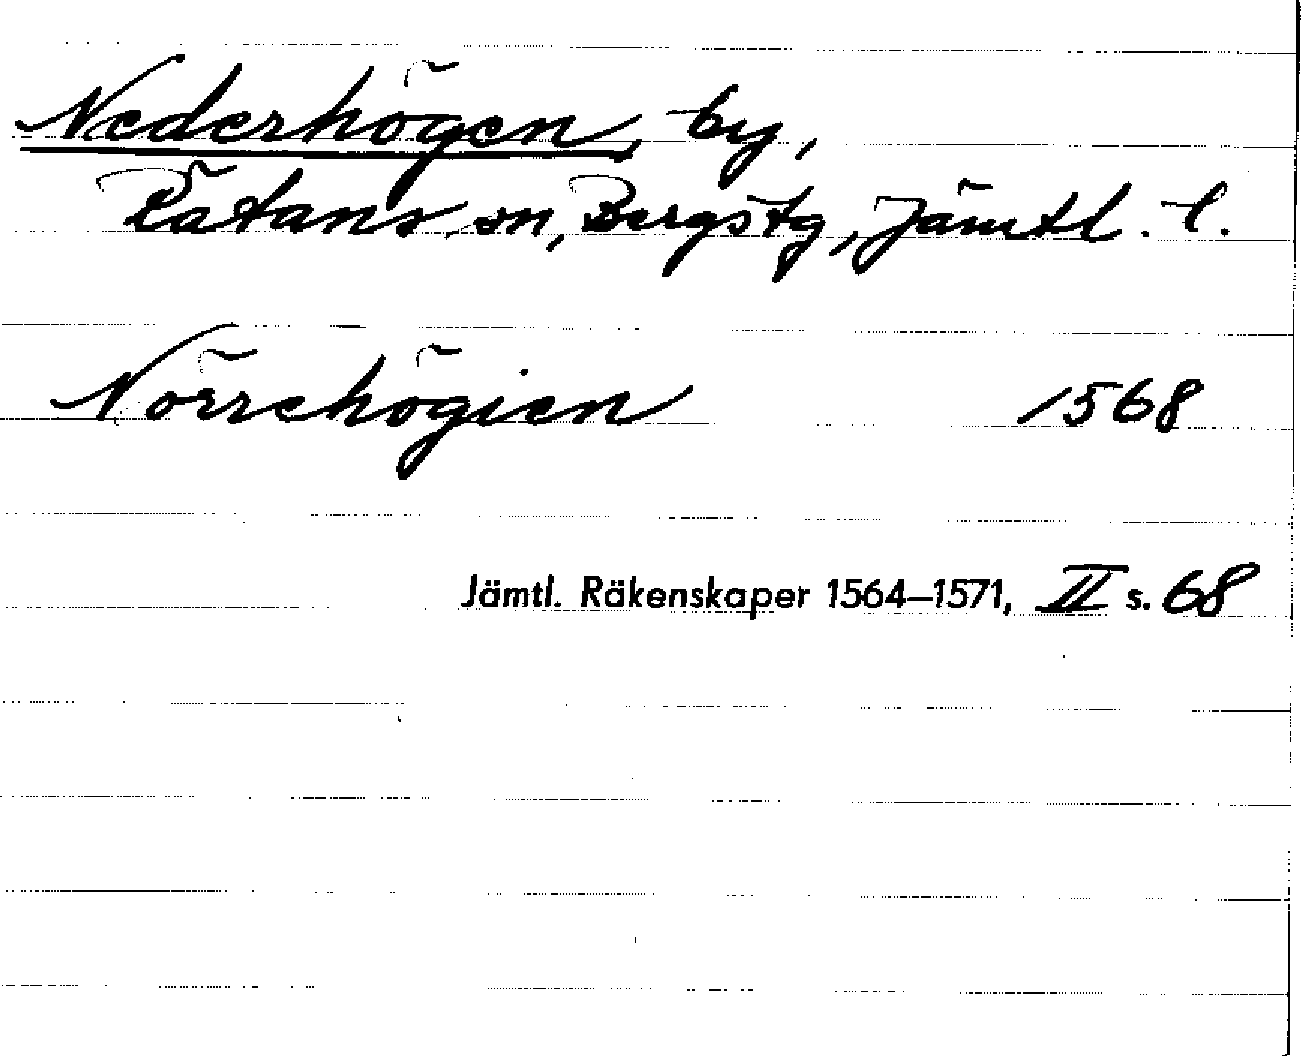 Nederhögen, by,
Rätans sn, Bergs tg, Jämtl. l.
Nörrehögien 1568
Jämtl. Räkenskaper 1564–1571, II s. 68